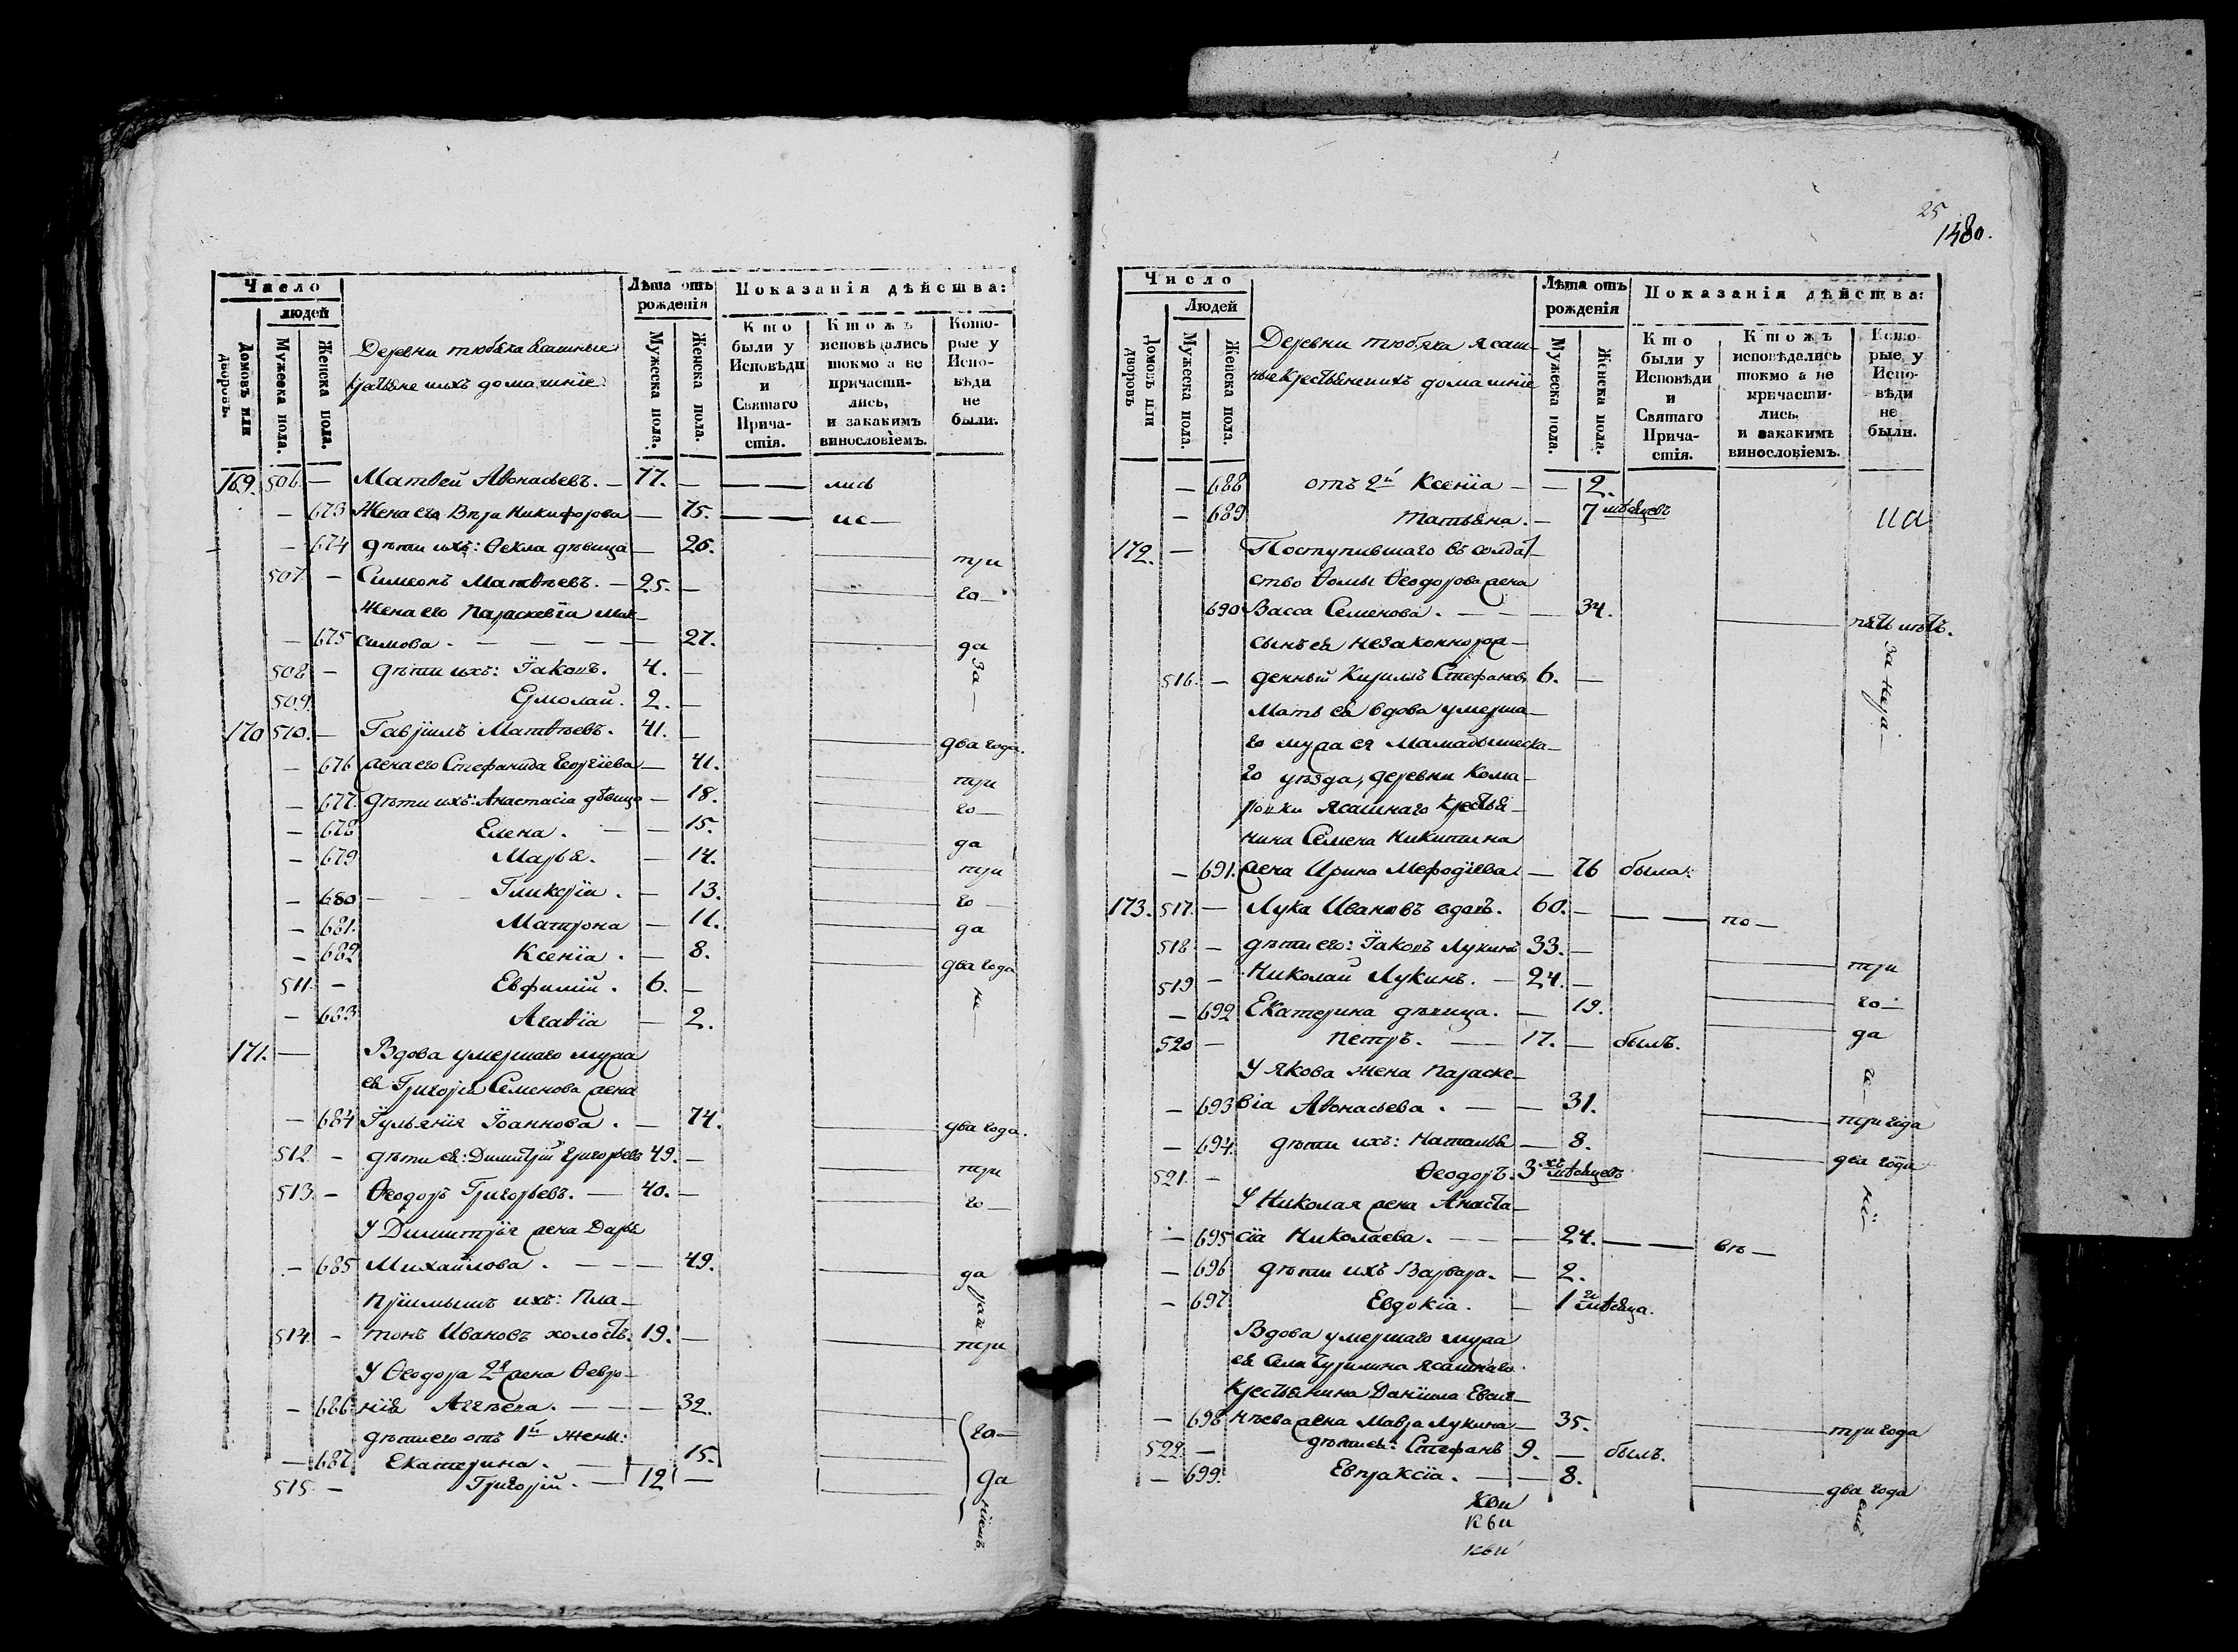 Число
людей
Домовъ или дворовъ.
Мужеска пола.
Женска пола.
Деревни тюбяка ясашные
крестьяне ихъ домашніе
Лѣта отъ рожденія
Мужеска пола.
Женска пола.
Показанія дѣйства:
Кто были у Исповѣди и Святаго Причастія.
Ктожъ исповѣдались токмо а не причастились, и закакимъ винословіемъ.
Которые у Исповѣди не были.
169. 506. — Матвей Аѳонасьевъ. — 77. — — — лись
— 673 Жена его Вѣра Никифорова — 75. — — ис—
— 674 дѣти ихъ: Ѳекла дѣвица — 26. — три
507. — Симеонъ Матвѣевъ. — 25. — — го—
Жена его Параскевіа Мак—
— 675 симова. — — — — 27. — да
за—
508 — дѣти ихъ: Іаковъ. 4. —
509. Ермолай. 2. —
170 510. — Гавріилъ Матвѣевъ. 41. — — два года.
— 676 жена его Стефанида Георгіева — 41. — три
— 677. дѣти ихъ: Анастасіа дѣвица — 18. — го—
— 678 Елена. — — 15. — да
— 679 Марья. — 14. — три
— 680 — Гликеріа. — 13. — го—
— 681. Матрона — 11. — да
— 682 Ксеніа. — 8. — два года
511. — Евфимій. 6. —
— 683 Агаѳіа — 2.
171. — Вдова умершаго мужа
ея Григорія Семенова жена
— 684 Іульянія Іоаннова. — 74. — два года.
512. — дѣти ея: Димитрій Григорьевъ 49. — — три
513. — Ѳеодоръ Григорьевъ. — 40. — — го—
У Димитрія жена Дарья
— 685 Михайлова. — — — 49. — да
Пріимышъ ихъ: Пла—
514. — тонъ Ивановъ холостъ. 19. — — три
У Ѳеодора 2я жена Ѳевро—
— 686 нія — — — 32. — го—
дѣти его отъ 1й жены:
— 687 Екатерина. — 15. — да
515. — Григорій. — 12 — —
25
1480.
Число
Людей
Домовъ или дворовъ
Мужеска пола.
Женска пола.
Деревни тюбяка ясаш—
ные крестьяне ихъ домашніе
Лѣта отъ рожденія
Мужеска пола.
Женска пола.
Показанія дѣйства:
Кто были у Исповѣди и Святаго Причастія.
Ктожъ исповѣдались токмо а не причастились, и закакимъ винословіемъ.
Которые у Исповѣди не были.
— 688 отъ 2й Ксеніа — — 2.
— 689 Татьяна. — 7 мѣсяцевъ
172. — Поступившаго въ солдат—
ство Ѳомы Ѳеодорова жена
690 Васса Семенова. — — — 34. — пять лѣтъ.
сынъ ея незаконнорож—
516. — денный Кириллъ Стефановъ 6. —
Мать ея вдова умерша—
го мужа ея Мамадышска—
го уѣзда, деревни Кома—
ровки ясашнаго крестья—
нина Семена Никитина
— 691. жена Ирина Мефодіева. — 76 была.
173. 517. — Лука Ивановъ вдовъ. 60. — — — по—
518 — дѣти его: Іаковъ Лукинъ 33. — — три
519 — Николай Лукинъ. — 24. — — го—
— 692 Екатерина дѣвица. — 19. — да
520 — Петръ. — 17. — былъ.
У Якова жена Параске—
— 693 віа Аѳонасьева. — — 31. — три года
— 694. дѣти ихъ: Наталья — 8. — два года
521. — Ѳеодоръ. 3хъ мѣсяцевъ
У Николая жена Анаста—
— 695 сіа Николаева. — — — 24. — — вѣ—
— 696 дѣти ихъ Варвара. — 2.
— 697 Евдокіа. — 1го мѣсяца.
Вдова умершаго мужа
ея Села Чурилина ясашнаго
крестьянина Даніила Евсиг—
— 698 нѣева жена Мавра Лукина — 35. — три года
522. — дѣти ея: Стефанъ 9. — былъ.
— 699. Евпраксіа. — — 8. — два года